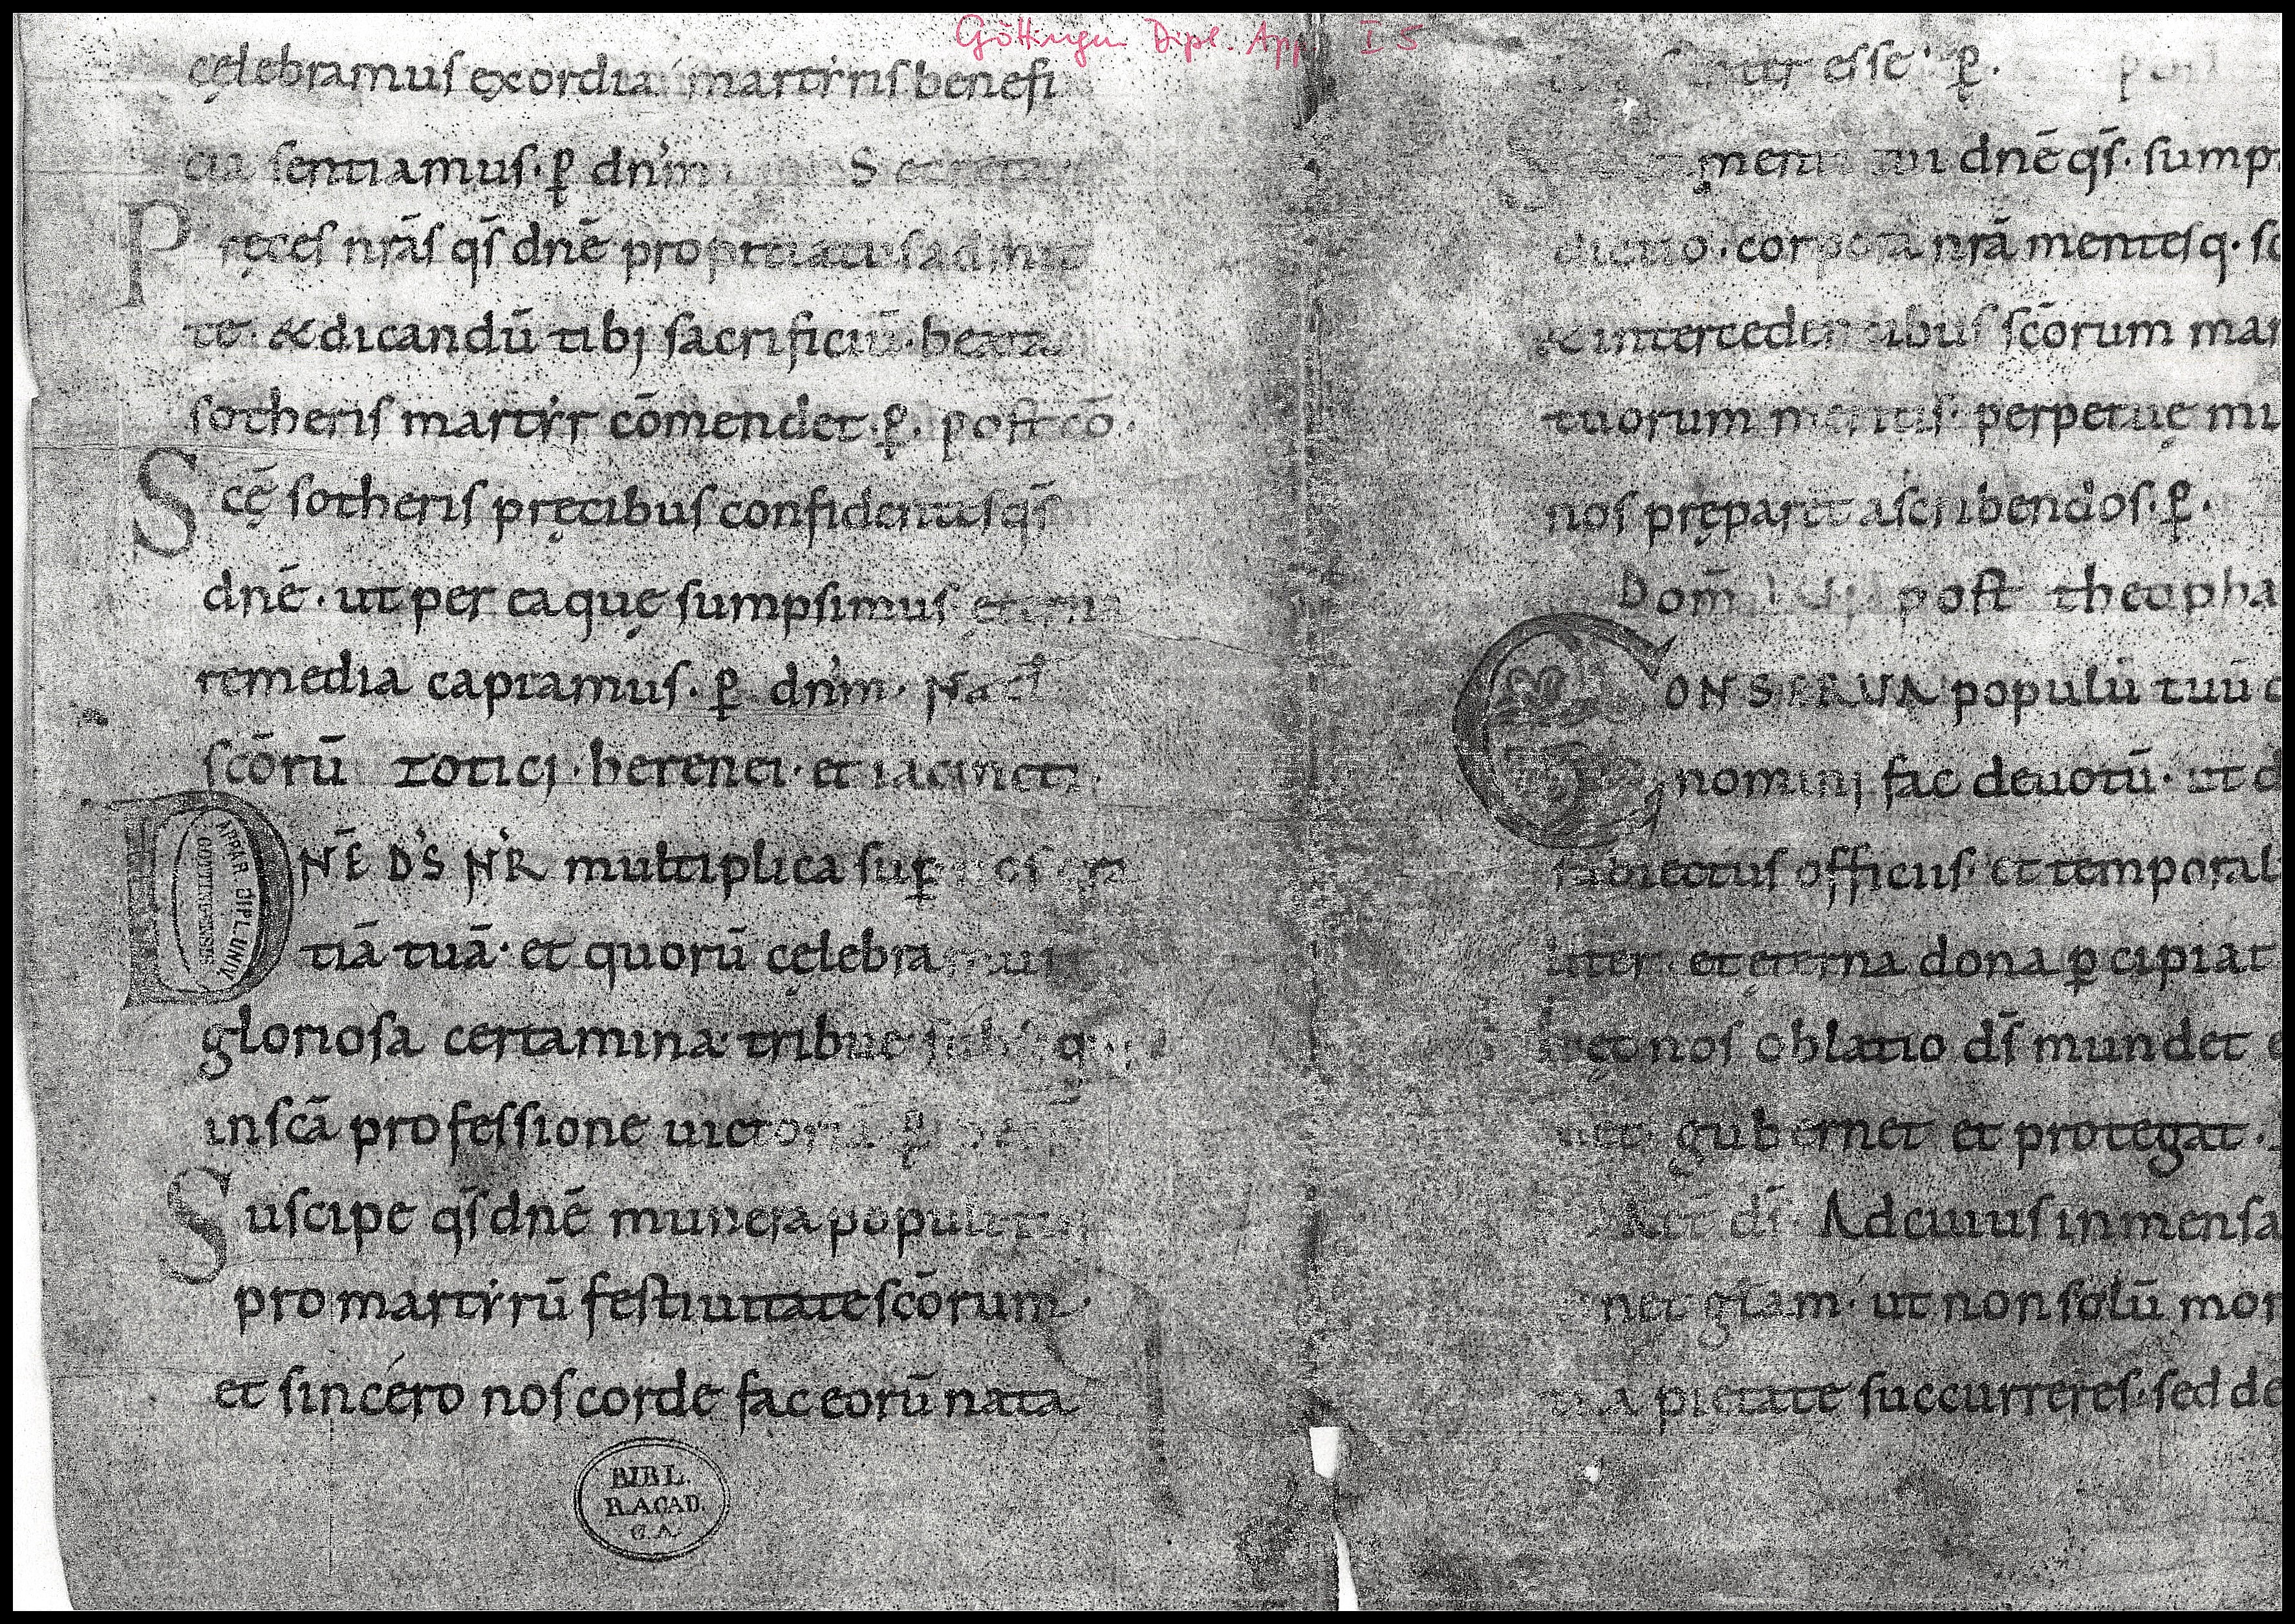 Göttingen Dipl. App. I 5
cęlebramus exordia martyris benefi
cia sentiamus · p̱ dn̄m Secreta
Pręces nr̄as qs̄ dnē propitiatus admit
te · & dicandū tibi sacrificiū · beata
sotheris martyr cōmendet · p̱ · post cō ·
Scē sotheris pręcibus confidentes qs̄
dnē · ut per ea quę sumpsimus ęterna
remedia capiamus · p̱ dn̄m · Nat̄
scōrū zotici · herenei · et iacincti
DNĒ DS̄ NR̄ multiplica sup̱
tiā tuā · et quorū cęlebra
gloriosa certamina tribue
in scā professione uictoria · p̱
Suscipe qs̄ dnē munera populi
pro martyrū festiuitate scōrum ·
et sincero nos corde fac eorū nata
APPAR DIPL UNIV
GOTTINGENSIS
BIBL.
R. ACAD.
G. A.
esse · p̱ ·
tui dnē qs̄ · sump
dictio · corpora nr̄a mentesq · sc
& intercedentibus scōrum mar
tuorum meritis · perpetuę mi
nos pręparet ascribendos · p̱ ·
Dom̄ post theopha
CONSERVA populū tuū
nomini fac deuotū · ut d
subiectus officiis · et temporal
liter et ęterna dona p̱cipiat
hęc nos oblatio ds̄ mundet
net · gubernet et protegat ·
Aet̄ ds̄ · Ad cuius inmensa
net glām · ut non solū mor
tua pietate succurreres · sed de